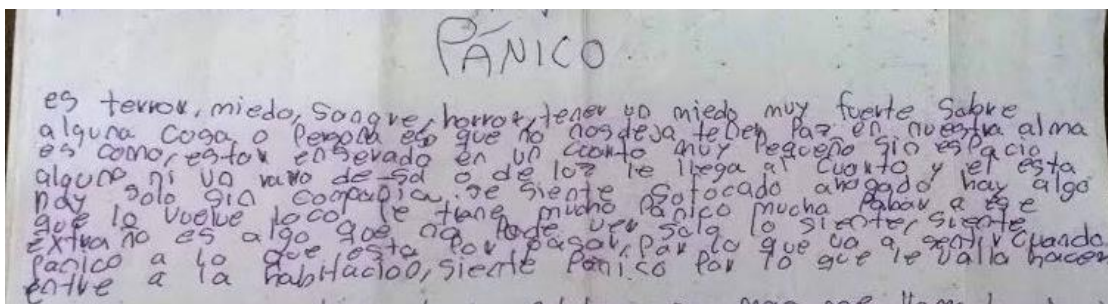 PÁNICO
es terror, miedo, Sangre, horror, tener un miedo muy fuerte Sobre
alguna cosa o Persona es que no nos deja tener Paz en nuestra alma
es como, estar enserado en un cuarto muy Pequeño sin espacio
alguno ni un rayo de sol o de loz le llega al cuarto y el esta
hay solo sin compañia, se siente sofocado ahogado hay algo
que lo vuelve loco, le tiene mucho Panico mucha Pabor a ese
extraño es algo que no Pode ver solo lo siente, siente
Panico a lo que esta Por Pasar, Por lo que va a sentir cuando
entre a la habitacion, siente Panico Por lo que le valla hacer